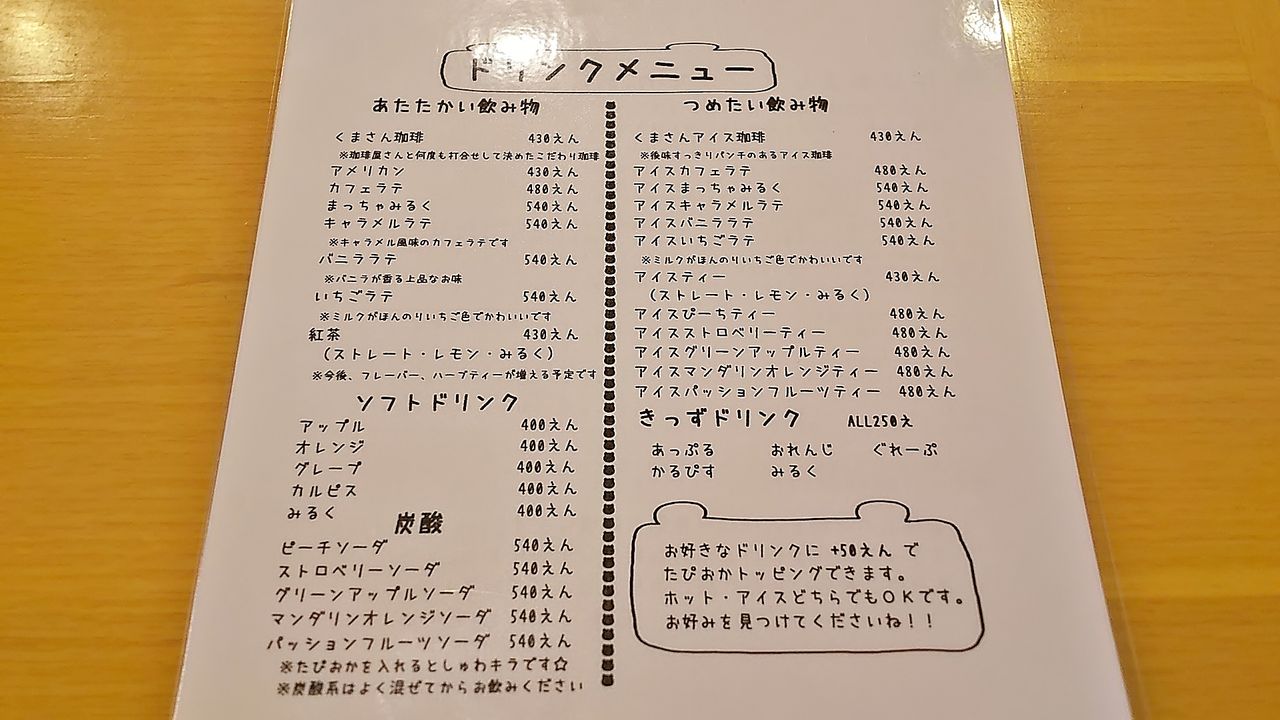 ドリンクメニュー
あたたかい飲み物
くまさん珈琲 430えん
※珈琲屋さんと何度も打合せして決めたこだわり珈琲
アメリカン 430えん
カフェラテ 480えん
まっちゃみるく 540えん
キャラメルラテ 540えん
※キャラメル風味のカフェラテです
バニララテ 540えん
※バニラが香る上品なお味
いちごラテ 540えん
※ミルクがほんのりいちご色でかわいいです
紅茶 430えん
(ストレート・レモン・みるく)
※今後、フレーバー、ハーブティーが増える予定です
ソフトドリンク
アップル 400えん
オレンジ 400えん
グレープ 400えん
カルピス 400えん
みるく 400えん
炭酸
ピーチソーダ 540えん
ストロベリーソーダ 540えん
グリーンアップルソーダ 540えん
マンダリンオレンジソーダ 540えん
パッションフルーツソーダ 540えん
※たぴおかを入れるとしゅわキラです☆
※炭酸系はよく混ぜてからお飲みください
つめたい飲み物
くまさんアイス珈琲 430えん
※後味すっきりパンチのあるアイス珈琲
アイスカフェラテ 480えん
アイスまっちゃみるく 540えん
アイスキャラメルラテ 540えん
アイスバニララテ 540えん
アイスいちごラテ 540えん
※ミルクがほんのりいちご色でかわいいです
アイスティー 430えん
(ストレート・レモン・みるく)
アイスぴーちティー 480えん
アイスストロベリーティー 480えん
アイスグリーンアップルティー 480えん
アイスマンダリンオレンジティー 480えん
アイスパッションフルーツティー 480えん
きっずドリンク ALL250え
あっぷる おれんじ ぐれーぷ
かるぴす みるく
お好きなドリンクに +50えん で
たぴおかトッピングできます。
ホット・アイスどちらでもOKです。
お好みを見つけてくださいね!!